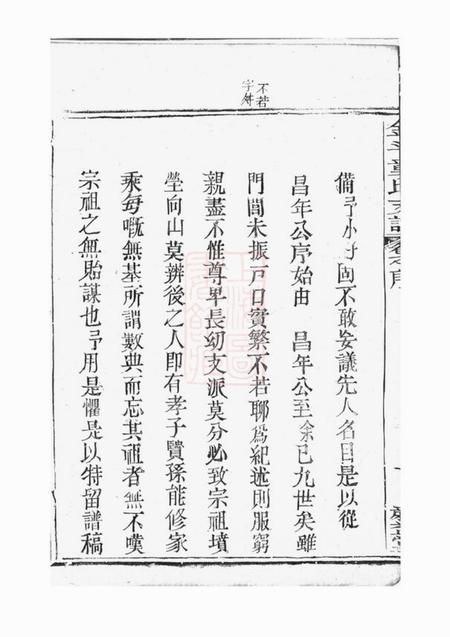 不若
字舛
備予小子固不敢妄議先人名目是以從
昌年公序始由 昌年公至余已九世矣雖
門閭未振戶口實繁不若聊爲紀述則服窮
親盡不惟尊卑長幼支派莫分必致宗祖墳
塋向山莫辨後之人即有孝子賢孫能修家
乘每嘅無基所謂數典而忘其祖者無不嘆
宗祖之無貽謀也予用是懼是以特留譜稿